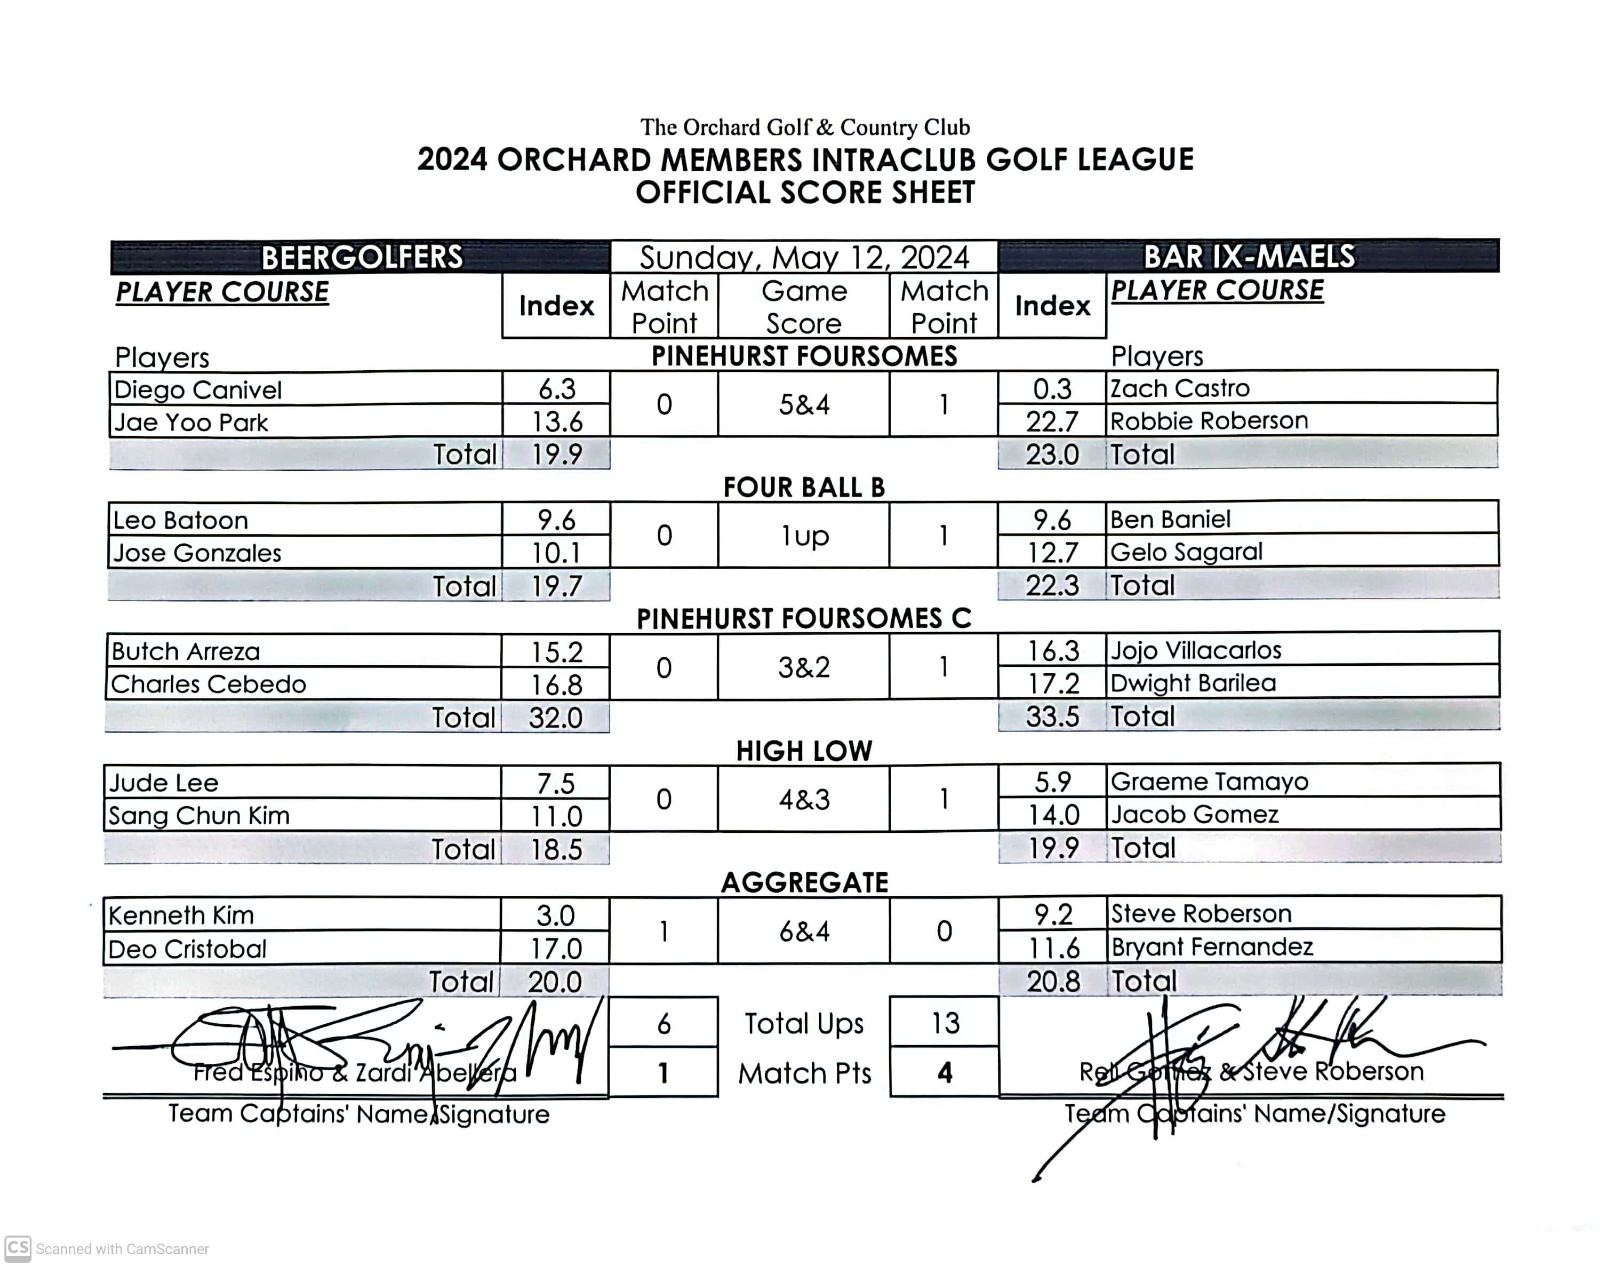 The Orchard Golf & Country Club
2024 ORCHARD MEMBERS INTRACLUB GOLF LEAGUE
OFFICIAL SCORE SHEET
BEERGOLFERS Sunday, May 12, 2024 BAR IX-MAELS
PLAYER COURSE Index Match Point Game Score Match Point Index PLAYER COURSE
Players PINEHURST FOURSOMES Players
Diego Canivel 6.3 0 5&4 1 0.3 Zach Castro
Jae Yoo Park 13.6 22.7 Robbie Roberson
Total 19.9 23.0 Total
FOUR BALL B
Leo Batoon 9.6 0 1up 1 9.6 Ben Baniel
Jose Gonzales 10.1 12.7 Gelo Sagaral
Total 19.7 22.3 Total
PINEHURST FOURSOMES C
Butch Arreza 15.2 0 3&2 1 16.3 Jojo Villacarlos
Charles Cebedo 16.8 17.2 Dwight Barilea
Total 32.0 33.5 Total
HIGH LOW
Jude Lee 7.5 0 4&3 1 5.9 Graeme Tamayo
Sang Chun Kim 11.0 14.0 Jacob Gomez
Total 18.5 19.9 Total
AGGREGATE
Kenneth Kim 3.0 1 6&4 0 9.2 Steve Roberson
Deo Cristobal 17.0 11.6 Bryant Fernandez
Total 20.0 20.8 Total
6 Total Ups 13
Fred Espino & Zardi Abellera 1 Match Pts 4 Gomez & Steve Roberson
Team Captains' Name/Signature Team Captains' Name/Signature
CS Scanned with CamScanner